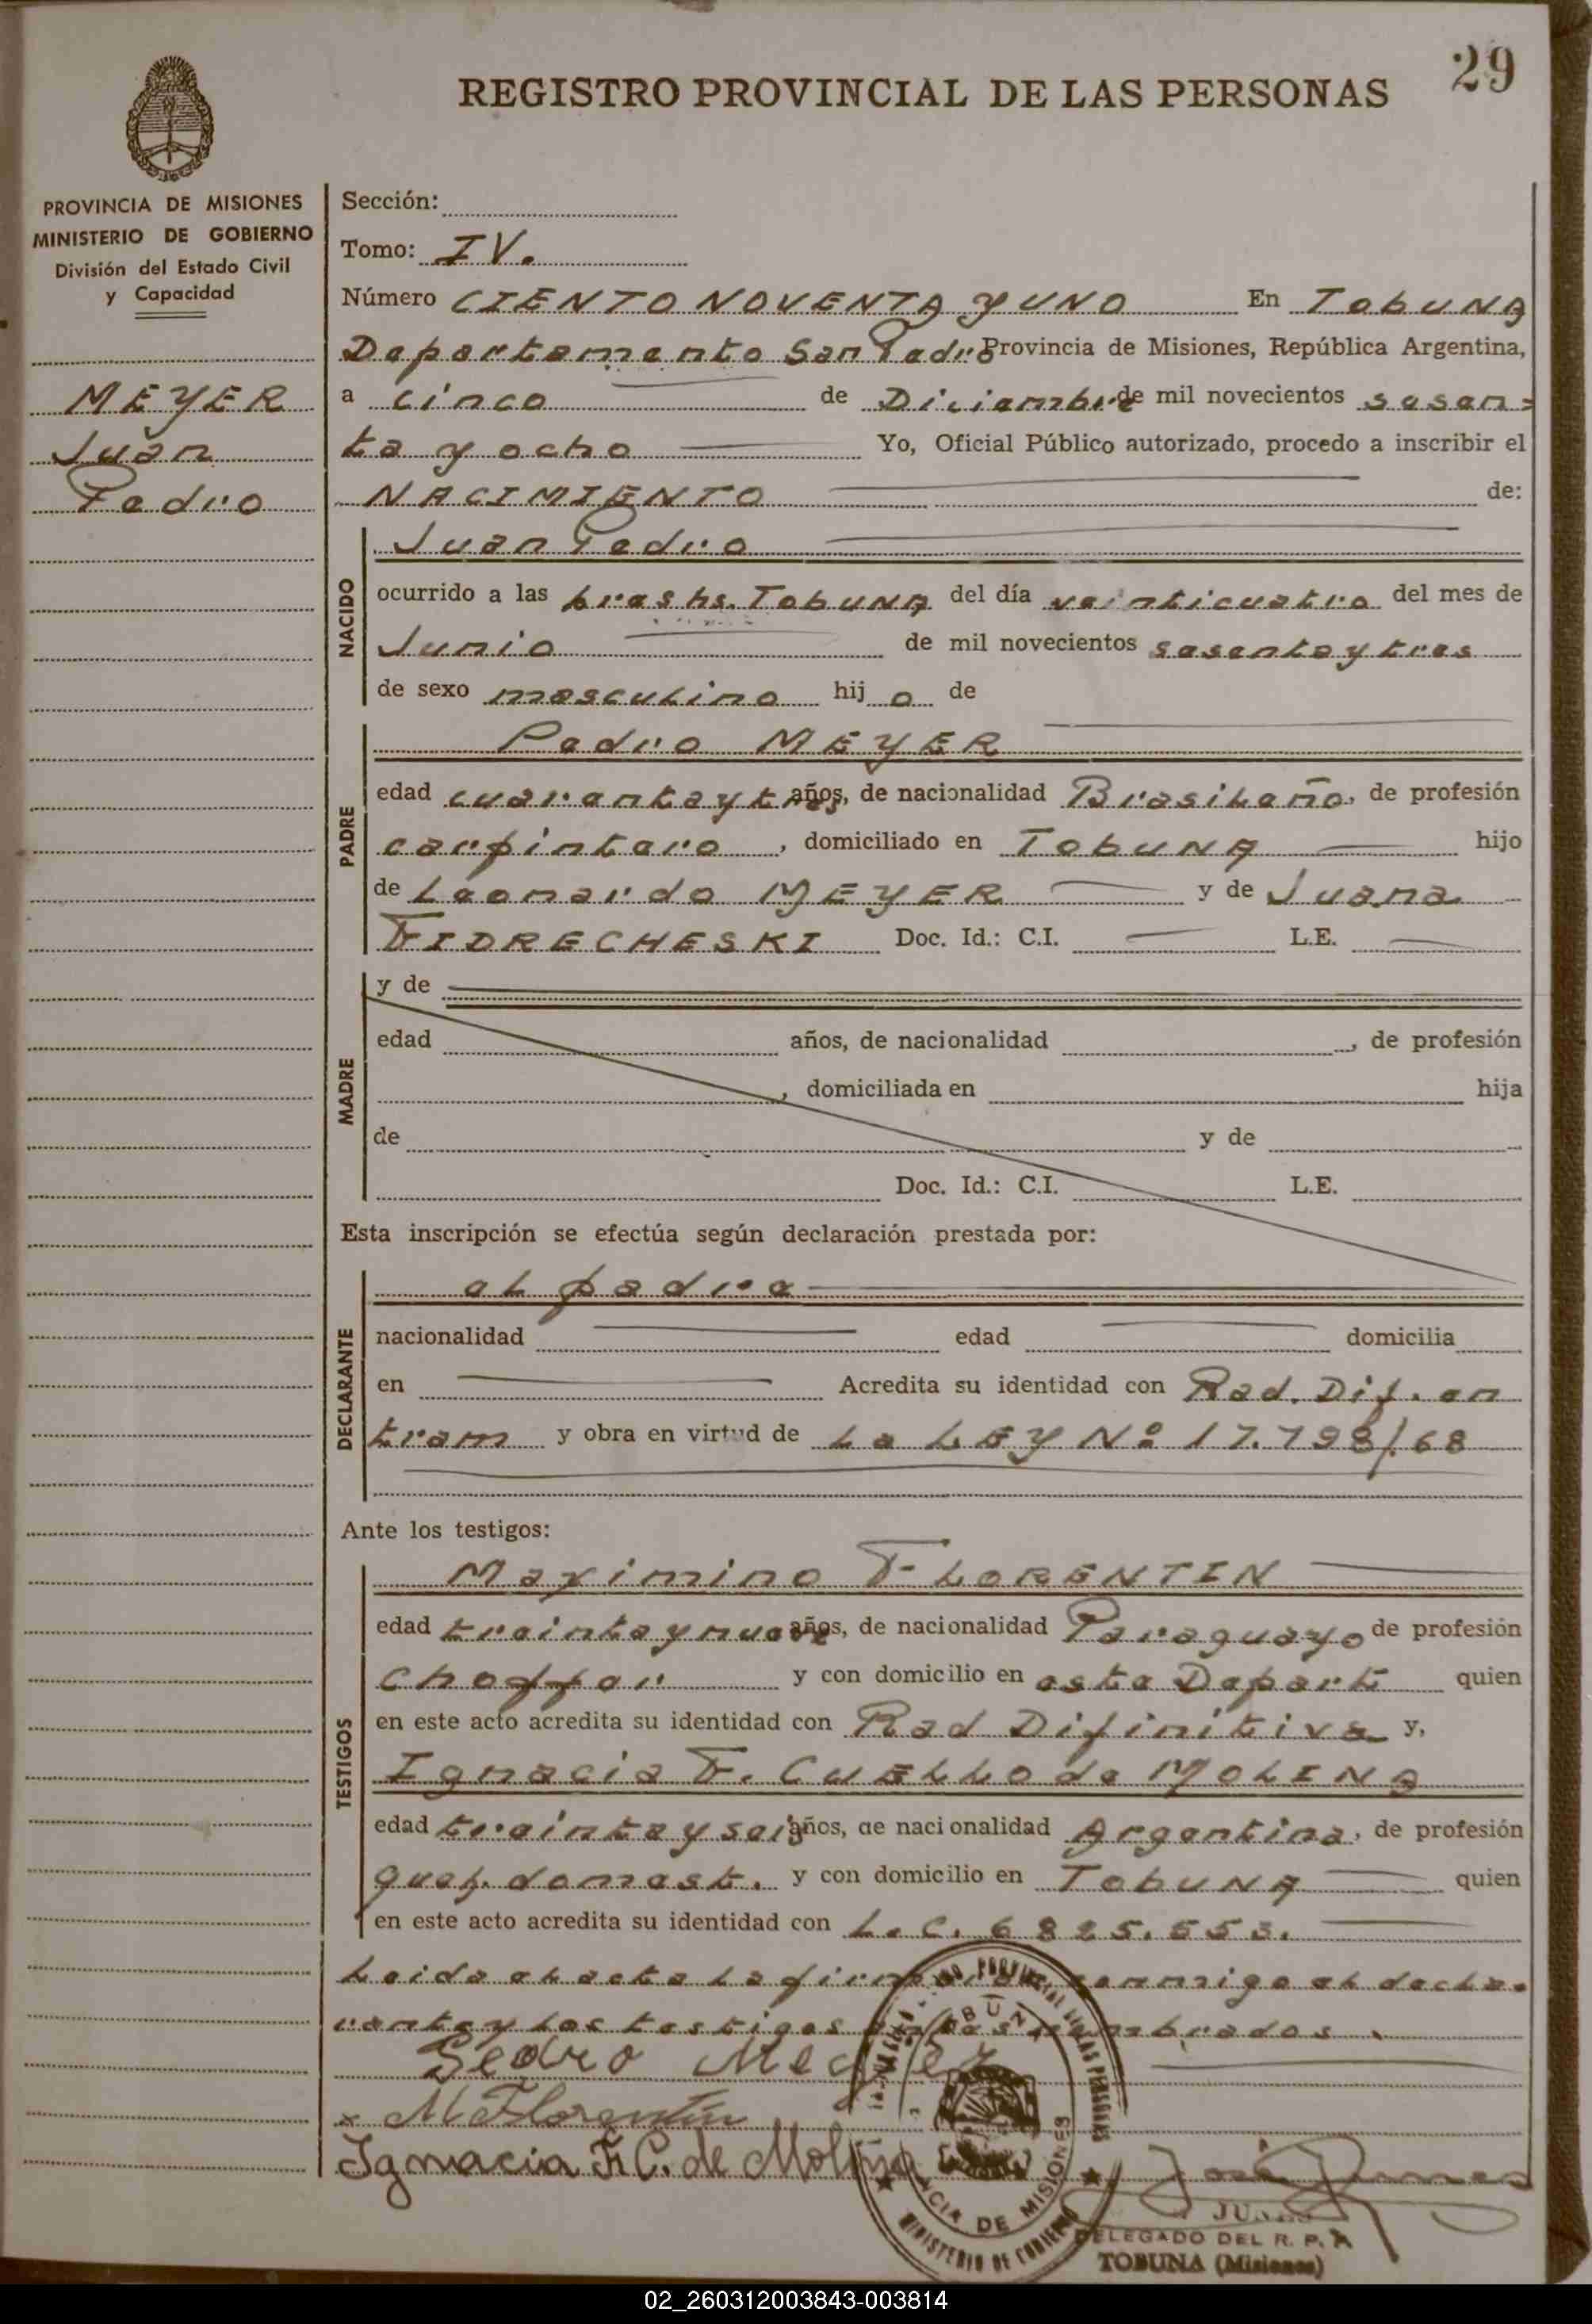 29
REGISTRO PROVINCIAL DE LAS PERSONAS
PROVINCIA DE MISIONES
MINISTERIO DE GOBIERNO
División del Estado Civil
y Capacidad
MEYER
Juan
Pedro
Sección:
Tomo: IV.
Número CIENTO NOVENTA y UNO En TobUNA
Departamento San Pedro Provincia de Misiones, República Argentina,
a cinco de Diciembre de mil novecientos sesen=
ta y ocho Yo, Oficial Público autorizado, procedo a inscribir el
NACIMIENTO de:
NACIDO
Juan Pedro
ocurrido a las tres hs. TobUNA del día veinticuatro del mes de
Junio de mil novecientos sesenta y tres
de sexo masculino hij o de
PADRE
Pedro MEYER
edad cuarenta y t años, de nacionalidad Brasileño, de profesión
carpintero, domiciliado en TobUNA hijo
de Leonardo MEYER y de Juana
FIDRECHESKI Doc. Id.: C.I. L.E.
MADRE
y de
edad años, de nacionalidad , de profesión
, domiciliada en hija
de y de
Doc. Id.: C.I. L.E.
Esta inscripción se efectúa según declaración prestada por:
DECLARANTE
el padre
nacionalidad edad domicilia
en Acredita su identidad con Rad. Dif. en
tram y obra en virtud de La LEY Nº 17.798/.68
Ante los testigos:
TESTIGOS
Maximino FLORENTIN
edad treinta y nueve años, de nacionalidad Paraguayo de profesión
choffer y con domicilio en este Depart quien
en este acto acredita su identidad con Rad Difinitiva y,
Ignacia F. CUELLO de MOLINA
edad treinta y seis años, de nacionalidad Argentina, de profesión
queh. domest. y con domicilio en TobUNA quien
en este acto acredita su identidad con L.C. 6825.553.
Leida el acta la firman conmigo el decla=
rante y los testigos nombrados.
Pedro Meyer
x M Florentín
Ignacia F. C. de Molina
PROVINCIA DE MISIONES
MINISTERIO DE GOBIERNO
DELEGADO DEL R. P. P.
TOBUNA (Misiones)
02_260312003843-003814